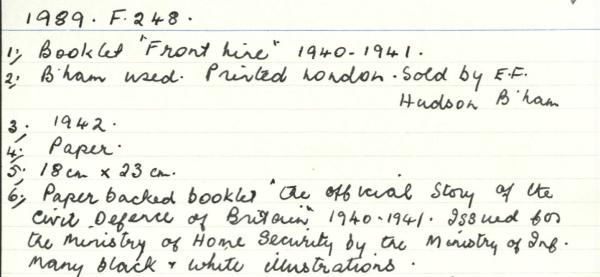 1989. F.248.
1; Booklet "Front Line" 1940-1941.
2; B'ham used. Printed London. Sold by E.F.
Hudson B'ham
3; 1942.
4; Paper.
5; 18cm x 23cm.
6; Paper backed booklet "the official Story of the
Civil Defence of Britain" 1940-1941. Issued for
the Ministry of Home Security by the Ministry of Inf.
Many black & white illustrations.